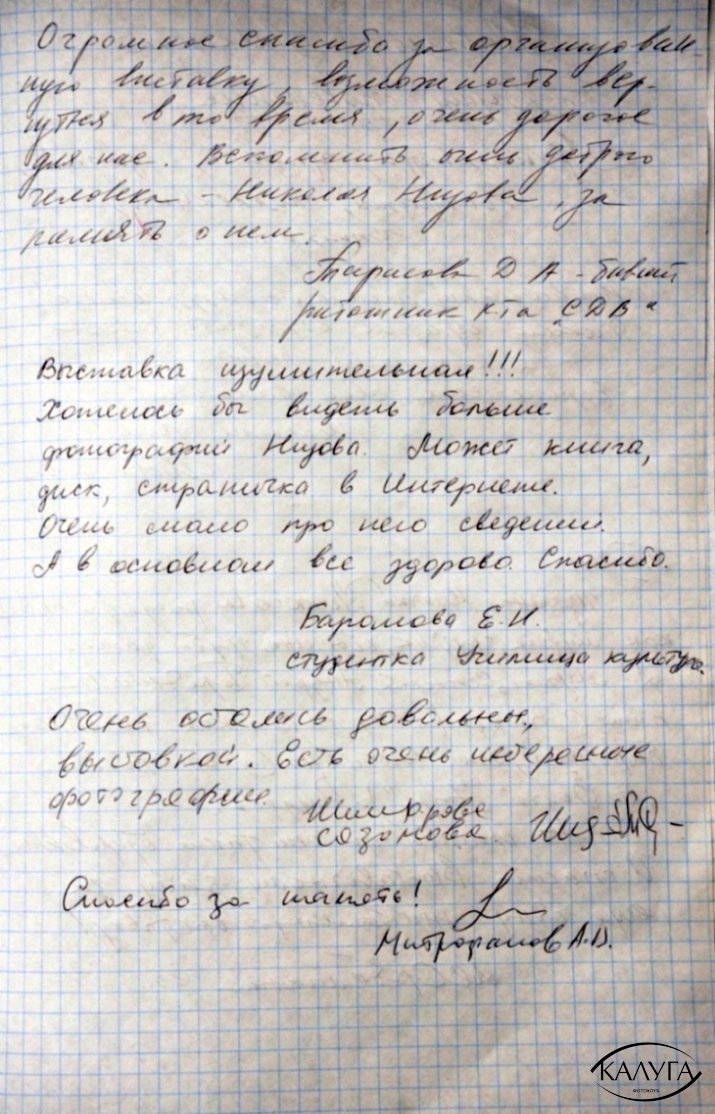 Огромное спасибо за организован-
ную виставку, возможность вер-
нуться в то время, очень дорогое
для нас. Вспомнить доброго
человека – Николая Низова, за
память о нем.
Тарасов Д А – бывший
работник кта „СДВ“
Выставка изумительная!!!
Хотелось бы видеть больше
фотографий Низова. Может книга,
диск, страничка в Интернете.
Очень мало про него сведений.
А в основном все здорово. Спасибо.
Е.И.
студентка Училища культуры.
Очень остались довольны,
выставкой. Есть очень интересные
фотографии.
Сазонова.
Спасибо за память!
Митрофанов А.В.
КАЛУГА
ФОТОКЛУБ